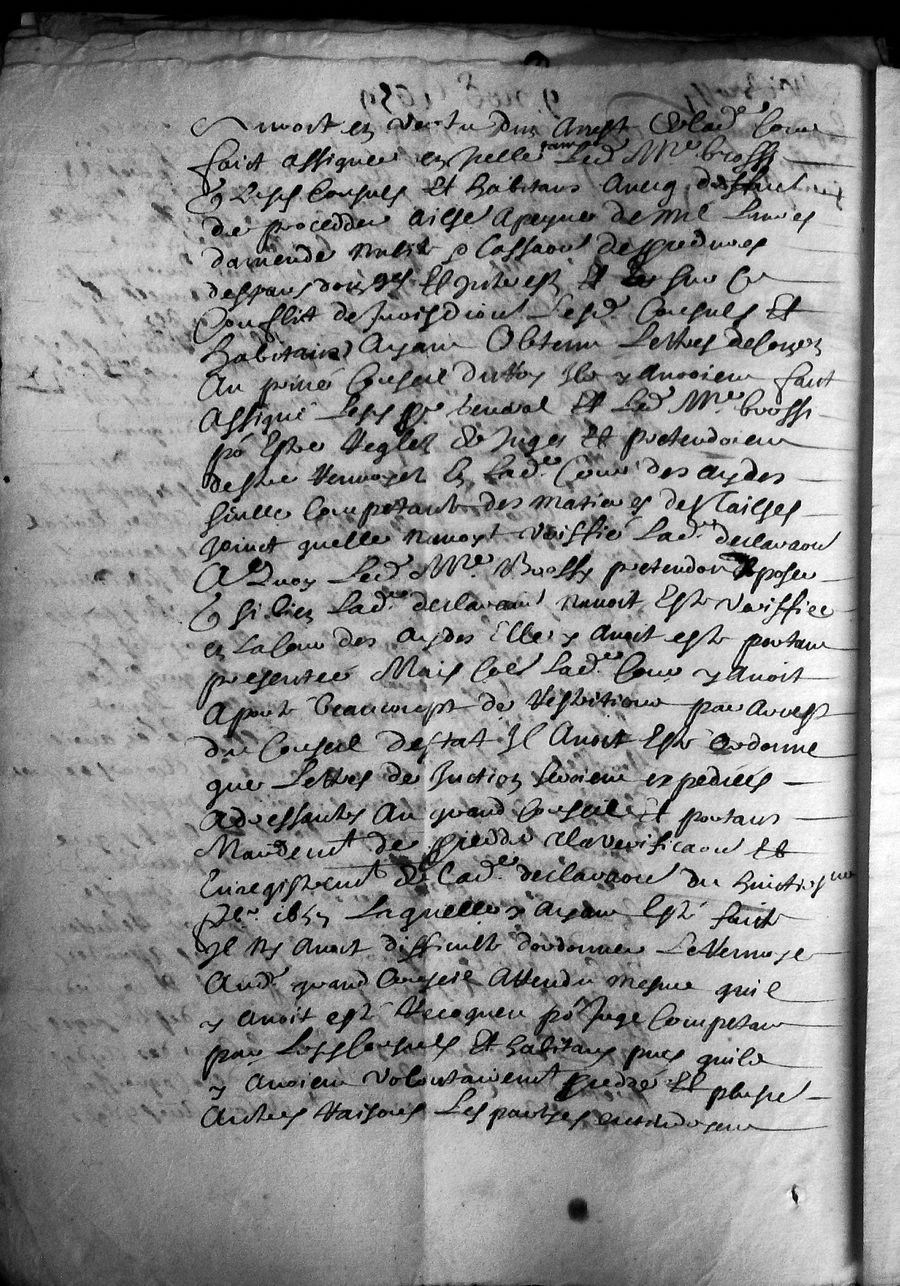 avoit en vertu dun Arrest de lad.e Cour
faict assigner en icelle led. Me brossi
& Lesd Consuls Et habitans Avecq deffault
de procedder Ailh.rs Apeyne de mil Livres
damende nullité & Cassaon des p.edures
despans dom.ges Et Interestz Et sur ce
Conflit de Jurisdion Lesd. Consuls Et
habitans Ayant Obtenu Lettres
Au privé Conseil du Roy Ilz y Avoient faict
Assigner Lesd Sr. général Et Led. Me. brossi
po. Estre Reglez de Juges Et pretendoient
destre Renvoyez En Lad.e Cour des aydes
Seulle Competante des matieres des Tailhes
Joinct quelle navoyt Veriffié Lad. declaraon
A Quoy Led. Me. Brossy pretendoit oposer
Q si bien Lad.e declaraon navoit Esté veriffiee
en la Cour des Aydes Elle y Avoit esté portant
presentee Mais Com Lad.e Cour y Avoit
Aporté beaucoupt de Restritions par Arrest
du Conseil destat Il Avoit Esté Ordonné
que Lettres de Juction seroient expediees
Adressantes Au grand Conseil Et portans
Mandem.t de p.cedder A la veriffication Et
Enregistrem.t de Lad.e declaraon du huictiesme
165 Laquelle y Ayant Esté faicte
Il ny Avoit difficulté dordonner Le Renvoye
Aud. grand Conseil Attendu mesme quil
y Avoit esté Recogneu po. Juge Competant
par Lesd Consuls Et habitans puis quilz
y Avoient volontairement p.cedder Et plusie.
Autres Raisons Les parties entendoyent